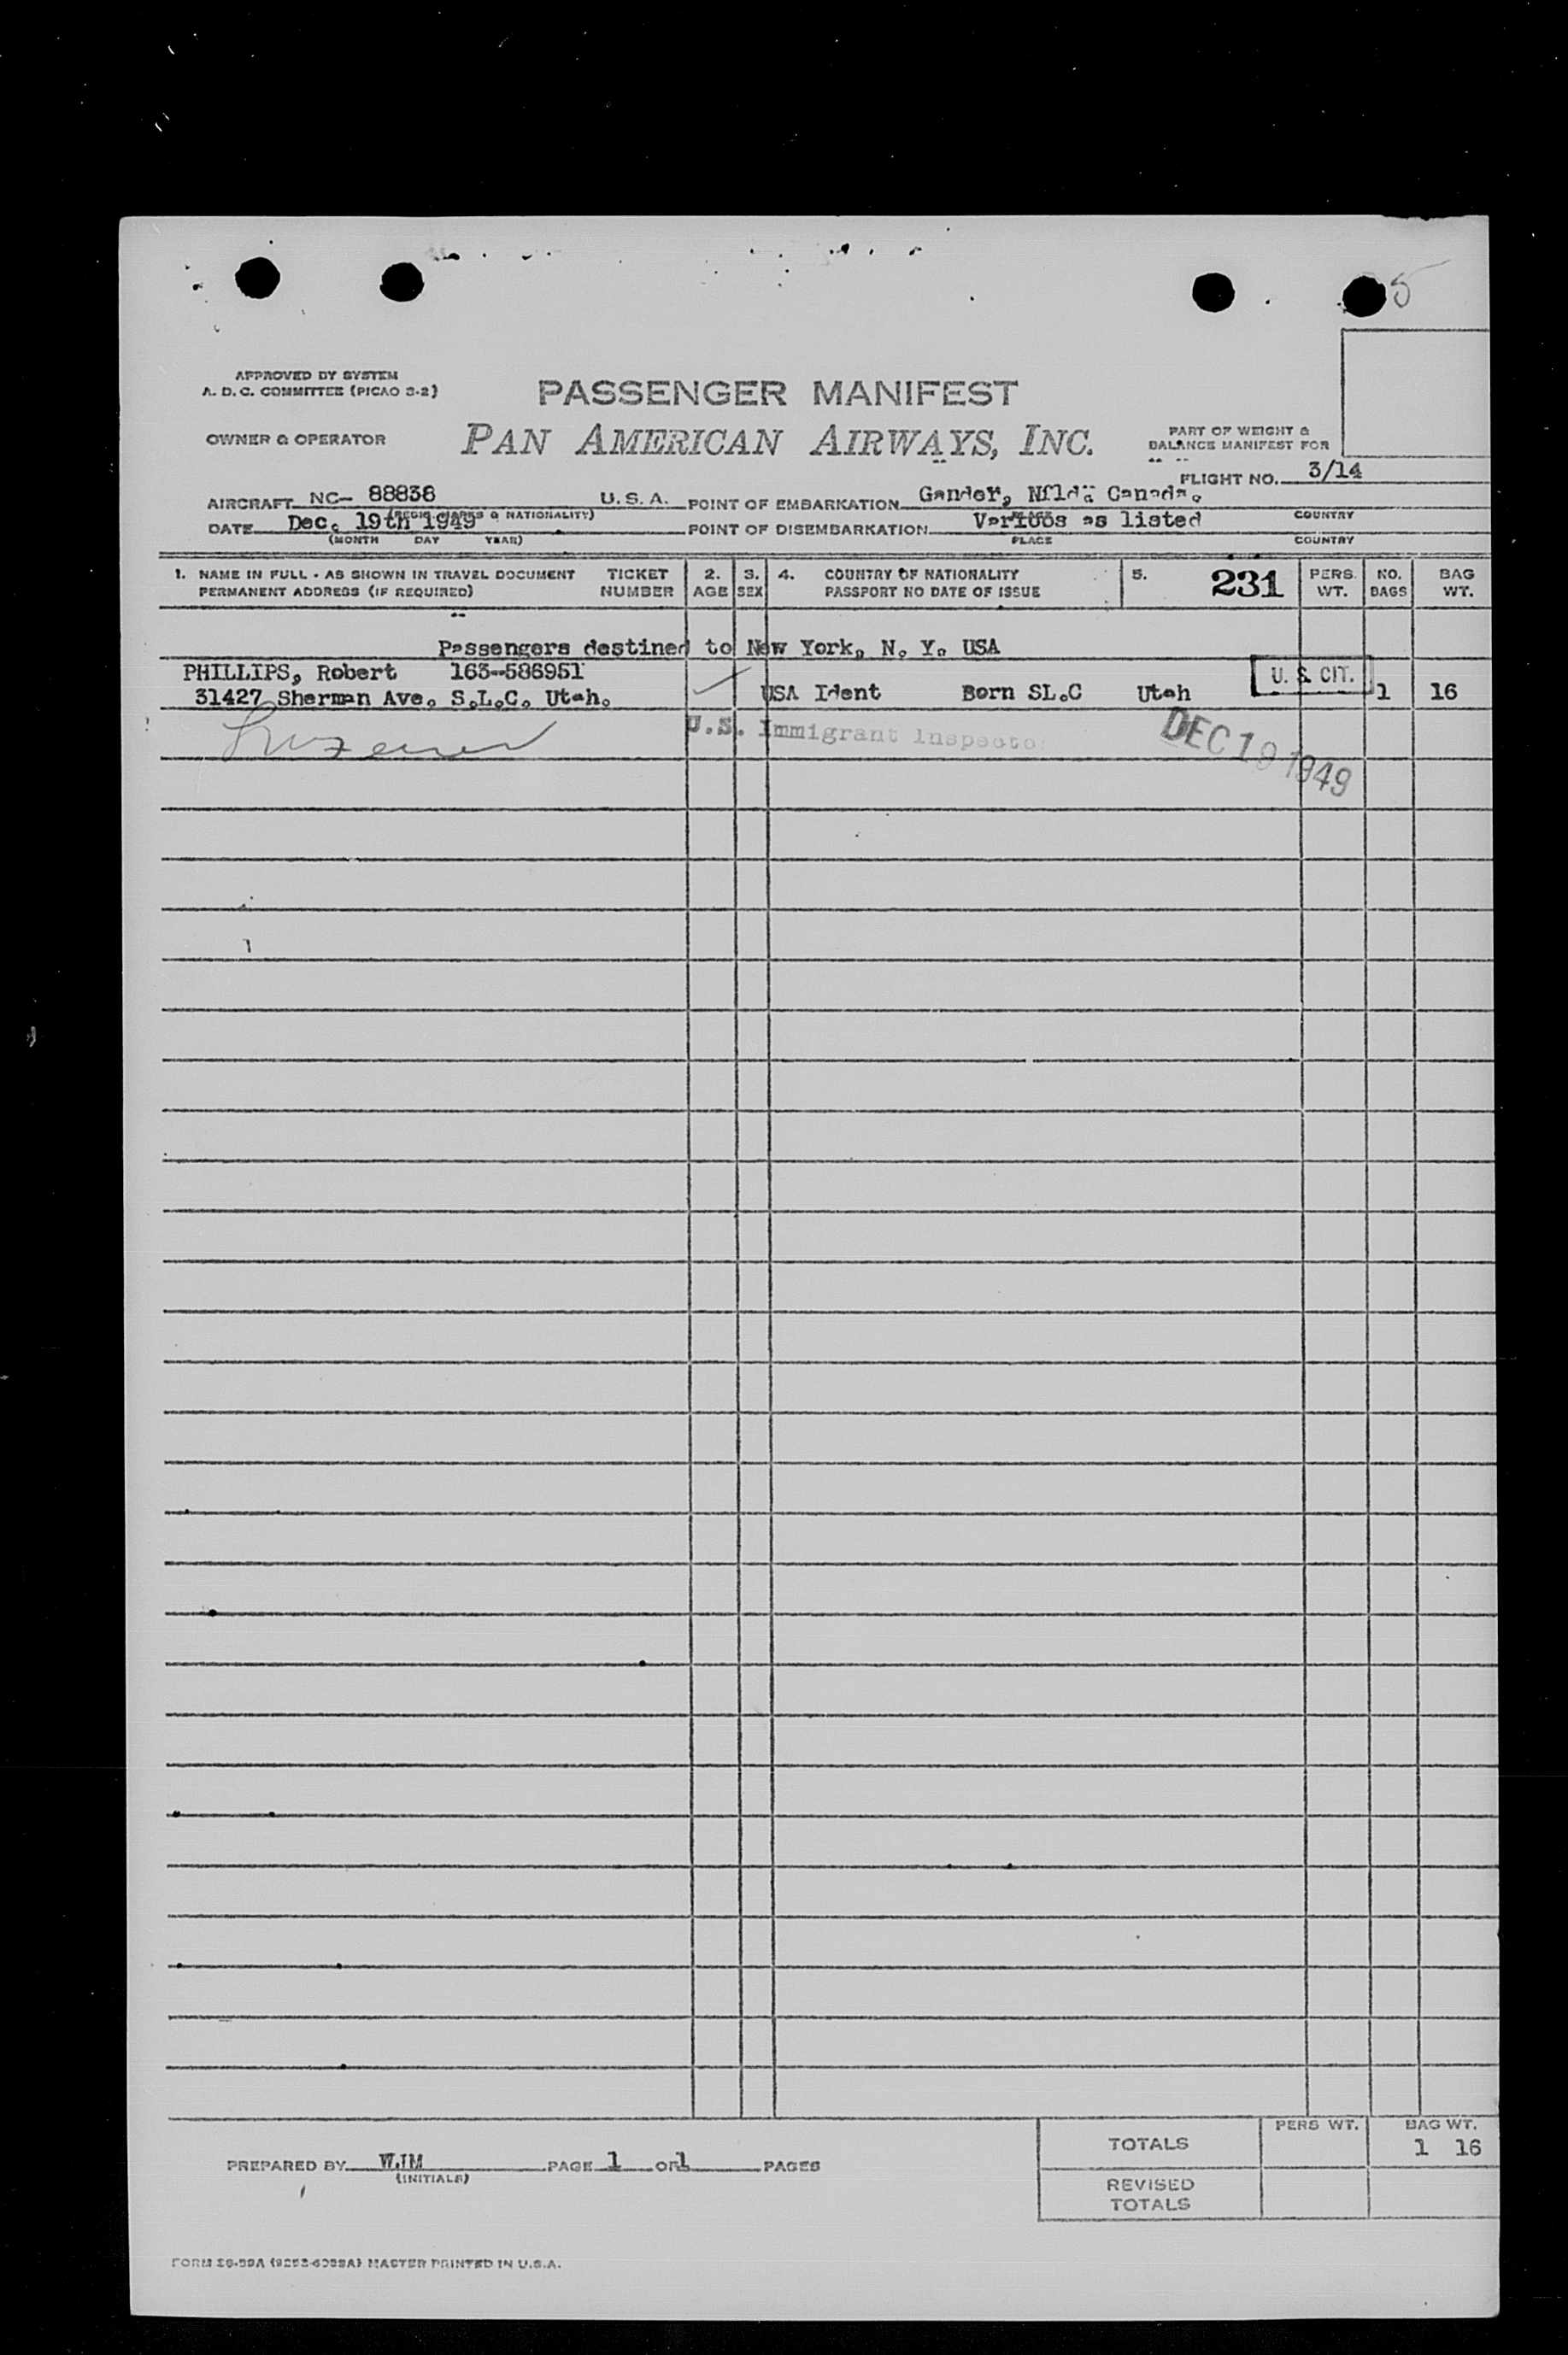 5
APPROVED BY SYSTEM
A. D. C. COMMITTEE (PICAO 3-2)
PASSENGER MANIFEST
OWNER & OPERATOR
PAN AMERICAN AIRWAYS, INC.
PART OF WEIGHT &
BALANCE MANIFEST FOR
FLIGHT NO. 3/14
AIRCRAFT NC- 88838 U. S. A. POINT OF EMBARKATION Gander, Nfld Canada.
(REGIS. MARKS & NATIONALITY) PLACE COUNTRY
DATE Dec. 19th 1949 POINT OF DISEMBARKATION Varioos as listed
(MONTH DAY YEAR) PLACE COUNTRY
1. NAME IN FULL - AS SHOWN IN TRAVEL DOCUMENT TICKET 2. 3. 4. COUNTRY OF NATIONALITY 5. 231 PERS. NO. BAG
PERMANENT ADDRESS (IF REQUIRED) NUMBER AGE SEX PASSPORT NO DATE OF ISSUE WT. BAGS WT.
Passengers destined to New York, N. Y. USA
PHILLIPS, Robert 163-586951 U. S. CIT.
31427 Sherman Ave. S.L.C. Utah. USA Ident Born SL.C Utah 1 16
U.S. Immigrant Inspector DEC 19 1949
TOTALS PERS WT. BAG WT.
1 16
PREPARED BY WJM PAGE 1 OF 1 PAGES
(INITIALS)
REVISED
TOTALS
MASTER PRINTED IN U.S.A.